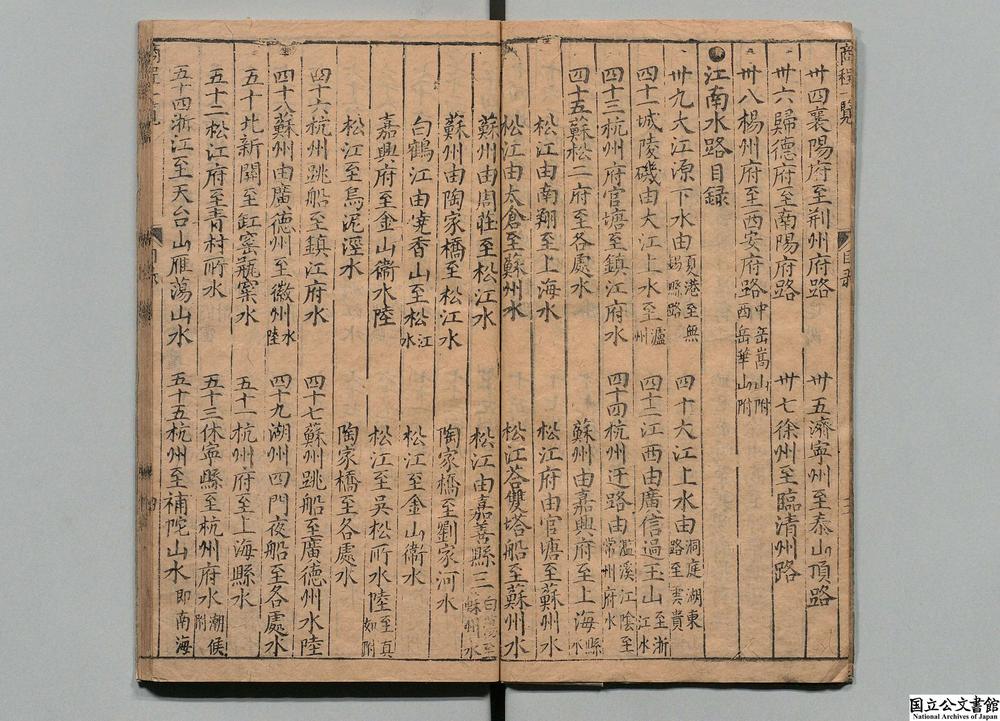 商程一覽
卅四襄陽府至荆州府路 卅五濟寧州至泰山頂路
卅六歸德府至南陽府路 卅七徐州至臨清州路
卅八楊州府至西安府路中岳嵩山附西岳華山附
江南水路目録
卅九大江源下水由夏港至無錫縣路 四十大江上水由洞庭湖東路至雲貴
四十一城陵磯由大江上水至瀘州 四十二江西由廣信過玉山至浙江水
四十三杭州府官塘至鎮江府水 四十四杭州迂路由濫溪江陰至常州府水
四十五蘇松二府至各處水 蘇州由嘉興府至上海縣水
松江由南翔至上海水 松江府由官塘至蘇州水
松江由太倉至蘇州水 松江荅雙塔船至蘇州水
蘇州由周莊至松江水 松江由嘉善縣三白蕩至蘇州水
蘇州由陶家橋至松江水 陶家橋至劉家河水
白鶴江由堯香山至松江水 松江至金山衞水
嘉興府至金山衞水陸 松江至吳松所水陸至真如附
松江至烏泥涇水 陶家橋至各處水
四十六杭州跳船至鎮江府水 四十七蘇州跳船至廣德州水陸
四十八蘇州由廣德州至徽州水陸 四十九湖州四門夜船至各處水
五十北新關至缸窰瓶窯水 五十一杭州府至上海縣水
五十二松江府至青村所水 五十三休寧縣至杭州府水潮候附
五十四浙江至天台山雁蕩山水 五十五杭州至補陀山水即南海
国立公文書館
National Archives of Japan